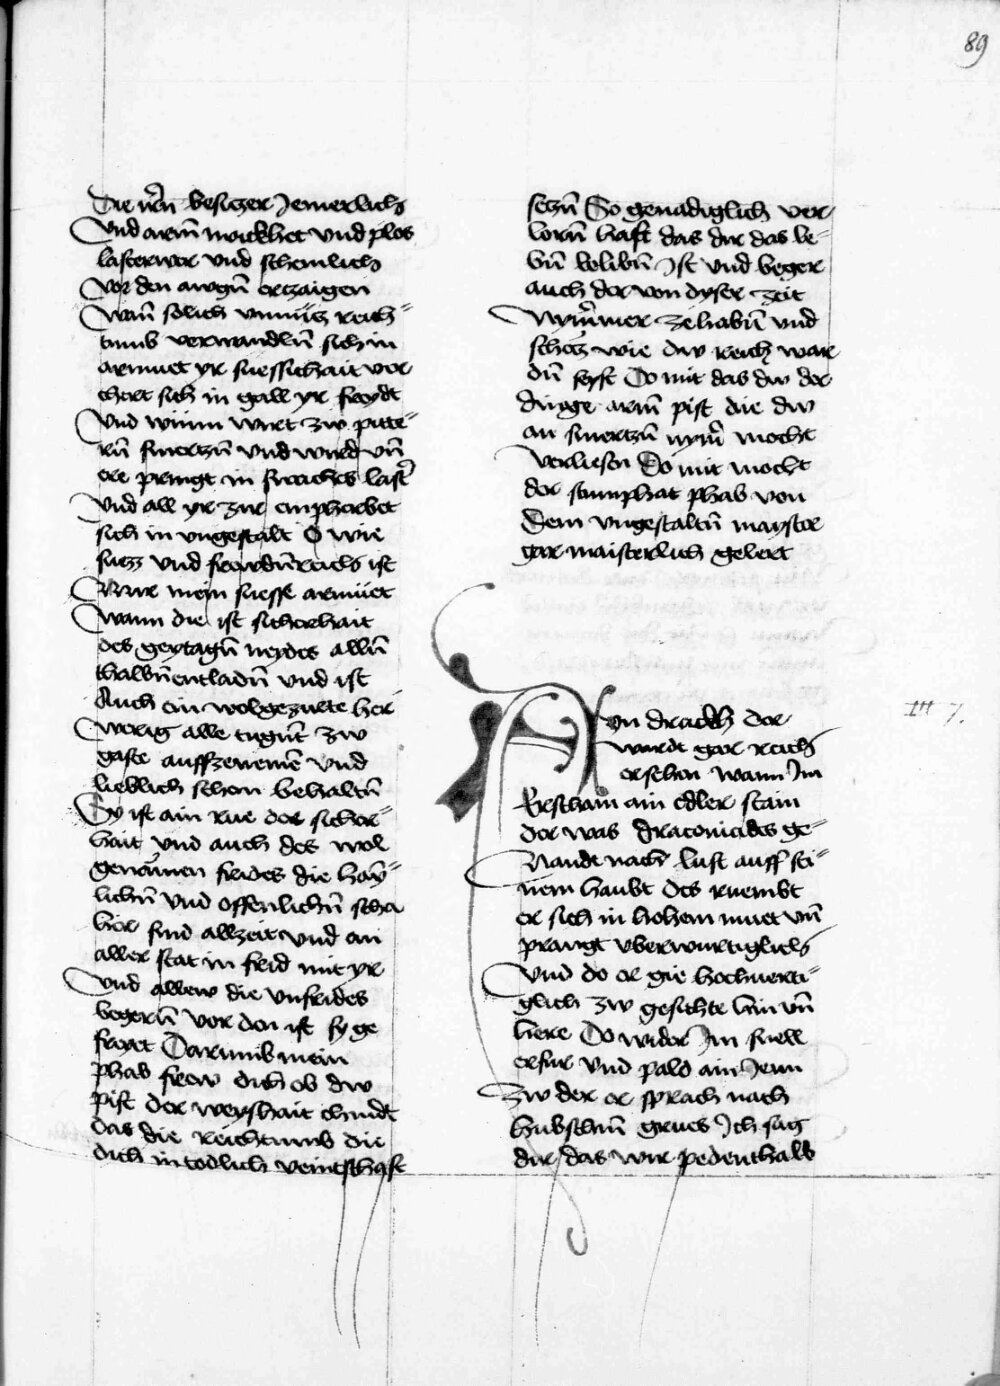 89
Die irn̄ besiczer Jemerlich
Vnd arm nackhet vnd plos
lasterwer vnd schemlich
vor den awgn̄ erczaigen
Wan̄ solich vnnücz reich¬
tumb verwandln̄ sich in
armuet yr suessichait ver
chert sich in gall yr freydt
Vnd wünn wirt zw pitte¬
rn̄ smertzn̄ vnd wird vn̄
ere pringt in swaches last̄
Vnd all yr zir empherbet
sich in vngestalt O wie
suezz vnd frewdn̄reich ist
Mir mein suesse armuet
Wann die ist sicherhait
des geytagn̄ neydes alln̄
thalbn̄ entladn̄ vnd ist
Auch ein wolgezirte her
werig alle tugn̄t zw
gaste auffzenemē vnd
lieblich schon behaltn̄
Sy ist ain rue der sicher¬
hait vnd auch des wol
genamen frides die hay¬
lichn̄ vnd offenlichn̄ scha
ler sind allzeit vnd an
aller stat in frid mit yr
Vnd allew die vnfrides
begern̄ vor den ist sy ge
freyet Darumb mein
phab frew dich ob dw
pist der weyshait chindt
das die reichtumb die
dich in todlich veintschaft
seczn̄ So genadiglich ver
lorn̄ hast das dir das le¬
bn̄ belibn̄ Ist vnd beger
auch der von dyser zeit
Nymmer ze habn̄ vnd
schecz wie dw reich war
dn̄ seyst Do mit das dw der
dinge arm pist die dw
an smertzn̄ nym̄ mocht
verliesen Do mit mocht
der stumphat phab von
Dem vngestaltn̄ mayster
gar maisterlich gelert
Ayn drackh der
wardt gar reich
ersehen wann Im
Erscham ain edler stain
der was draconicides ge¬
Nandt nach lust auff sei¬
nem haubt des ruembt
er sich in hohem muet vn̄
prangt vberwirtiglich
Vnd do er gie hochuerti¬
glich zw gesichte hin vn̄
here Do wider Im snell
erfur vnd pald ain Jenn
Zw der er sprach nach
hubschm̄ grues Ich sag
dir das wir pedenthalb
III 7.